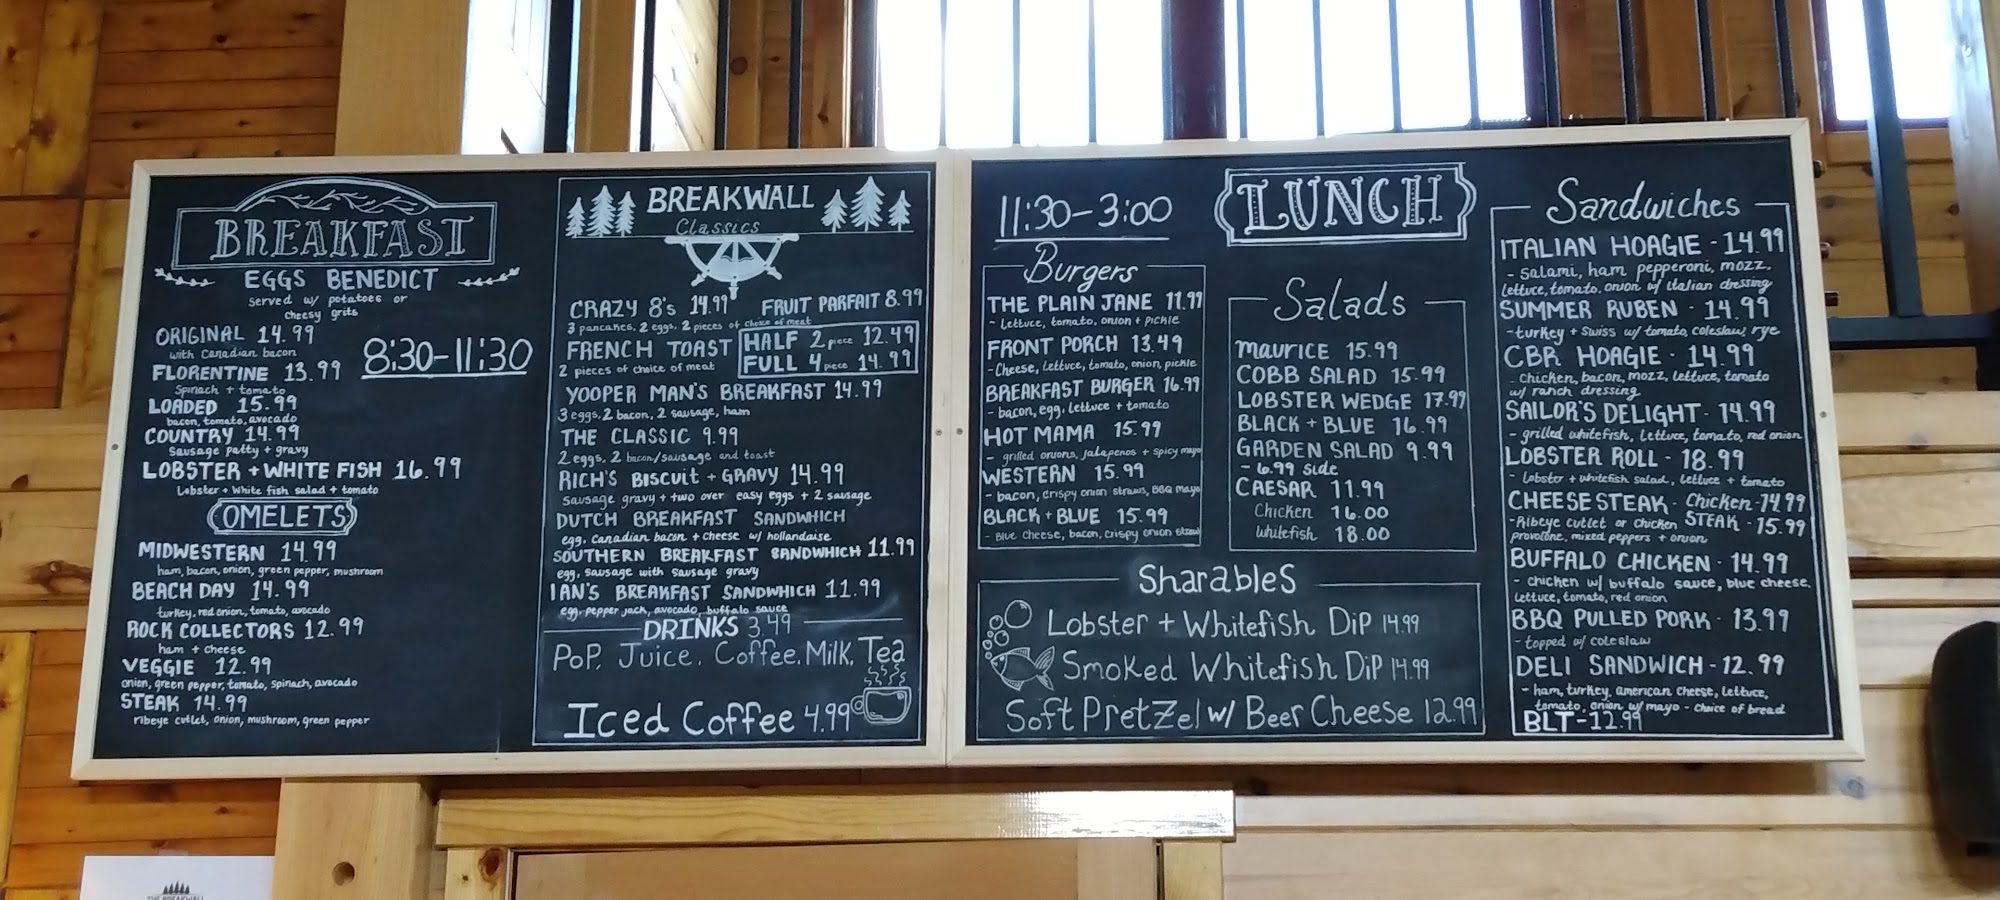 BREAKFAST
EGGS BENEDICT
served w/ potatoes or
cheesy grits
ORIGINAL 14.99
with Canadian bacon
8:30-11:30
FLORENTINE 13.99
Spinach + tomato
LOADED 15.99
bacon, tomato, avocado
COUNTRY 14.99
Sausage patty + gravy
LOBSTER + WHITE FISH 16.99
Lobster + White fish salad + tomato
OMELETS
MIDWESTERN 14.99
ham, bacon, onion, green pepper, mushroom
BEACH DAY 14.99
turkey, red onion, tomato, avocado
ROCK COLLECTORS 12.99
ham + cheese
VEGGIE 12.99
onion, green pepper, tomato, spinach, avocado
STEAK 14.99
ribeye cutlet, onion, mushroom, green pepper
BREAKWALL
Classics
CRAZY 8's 14.99 FRUIT PARFAIT 8.99
3 pancakes, 2 eggs, 2 pieces of choice of meat
FRENCH TOAST HALF 2 piece 12.49
2 pieces of choice of meat FULL 4 piece 14.99
YOOPER MAN'S BREAKFAST 14.99
3 eggs, 2 bacon, 2 sausage, ham
THE CLASSIC 9.99
2 eggs, 2 bacon/sausage and toast
RICH'S BISCUIT + GRAVY 14.99
Sausage gravy + two over easy eggs + 2 sausage
DUTCH BREAKFAST SANDWHICH
egg, Canadian bacon + cheese w/ hollandaise
SOUTHERN BREAKFAST SANDWHICH 11.99
egg, sausage with sausage gravy
IAN'S BREAKFAST SANDWICH 11.99
egg, pepper jack, avocado, buffalo sauce
DRINKS 3.49
POP, Juice, Coffee, Milk, Tea
Iced Coffee 4.99
11:30-3:00
LUNCH
Burgers
THE PLAIN JANE 11.99
- lettuce, tomato, onion + pickle
FRONT PORCH 13.49
- Cheese, lettuce, tomato, onion, pickle
BREAKFAST BURGER 16.99
- bacon, egg, lettuce + tomato
HOT MAMA 15.99
- grilled onions, jalapenos + spicy mayo
WESTERN 15.99
- bacon, crispy onion straws, BBQ mayo
BLACK + BLUE 15.99
- Blue cheese, bacon, crispy onion straw
Salads
MAURICE 15.99
COBB SALAD 15.99
LOBSTER WEDGE 17.99
BLACK + BLUE 16.99
GARDEN SALAD 9.99
- 6.99 side
CAESAR 11.99
Chicken 16.00
Whitefish 18.00
Sharables
Lobster + Whitefish Dip 14.99
Smoked Whitefish Dip 14.99
Soft Pretzel w/ Beer Cheese 12.99
Sandwiches
ITALIAN HOAGIE - 14.99
- salami, ham, pepperoni, mozz,
lettuce, tomato, onion w/ italian dressing
SUMMER RUBEN - 14.99
- turkey + swiss w/ tomato, coleslaw, rye
CBR HOAGIE - 14.99
- Chicken, bacon, mozz, lettuce, tomato
w/ ranch dressing
SAILOR'S DELIGHT - 14.99
- grilled whitefish, lettuce, tomato, red onion
LOBSTER ROLL - 18.99
- lobster + whitefish salad, lettuce + tomato
CHEESESTEAK - Chicken - 14.99
- Ribeye cutlet or chicken STEAK - 15.99
provolone, mixed peppers + onion
BUFFALO CHICKEN - 14.99
- chicken w/ buffalo sauce, blue cheese,
lettuce, tomato, red onion
BBQ PULLED PORK - 13.99
- topped w/ coleslaw
DELI SANDWICH - 12.99
- ham, turkey, american cheese, lettuce,
tomato, onion w/ mayo - choice of bread
BLT - 12.99
THE BREAKWALL